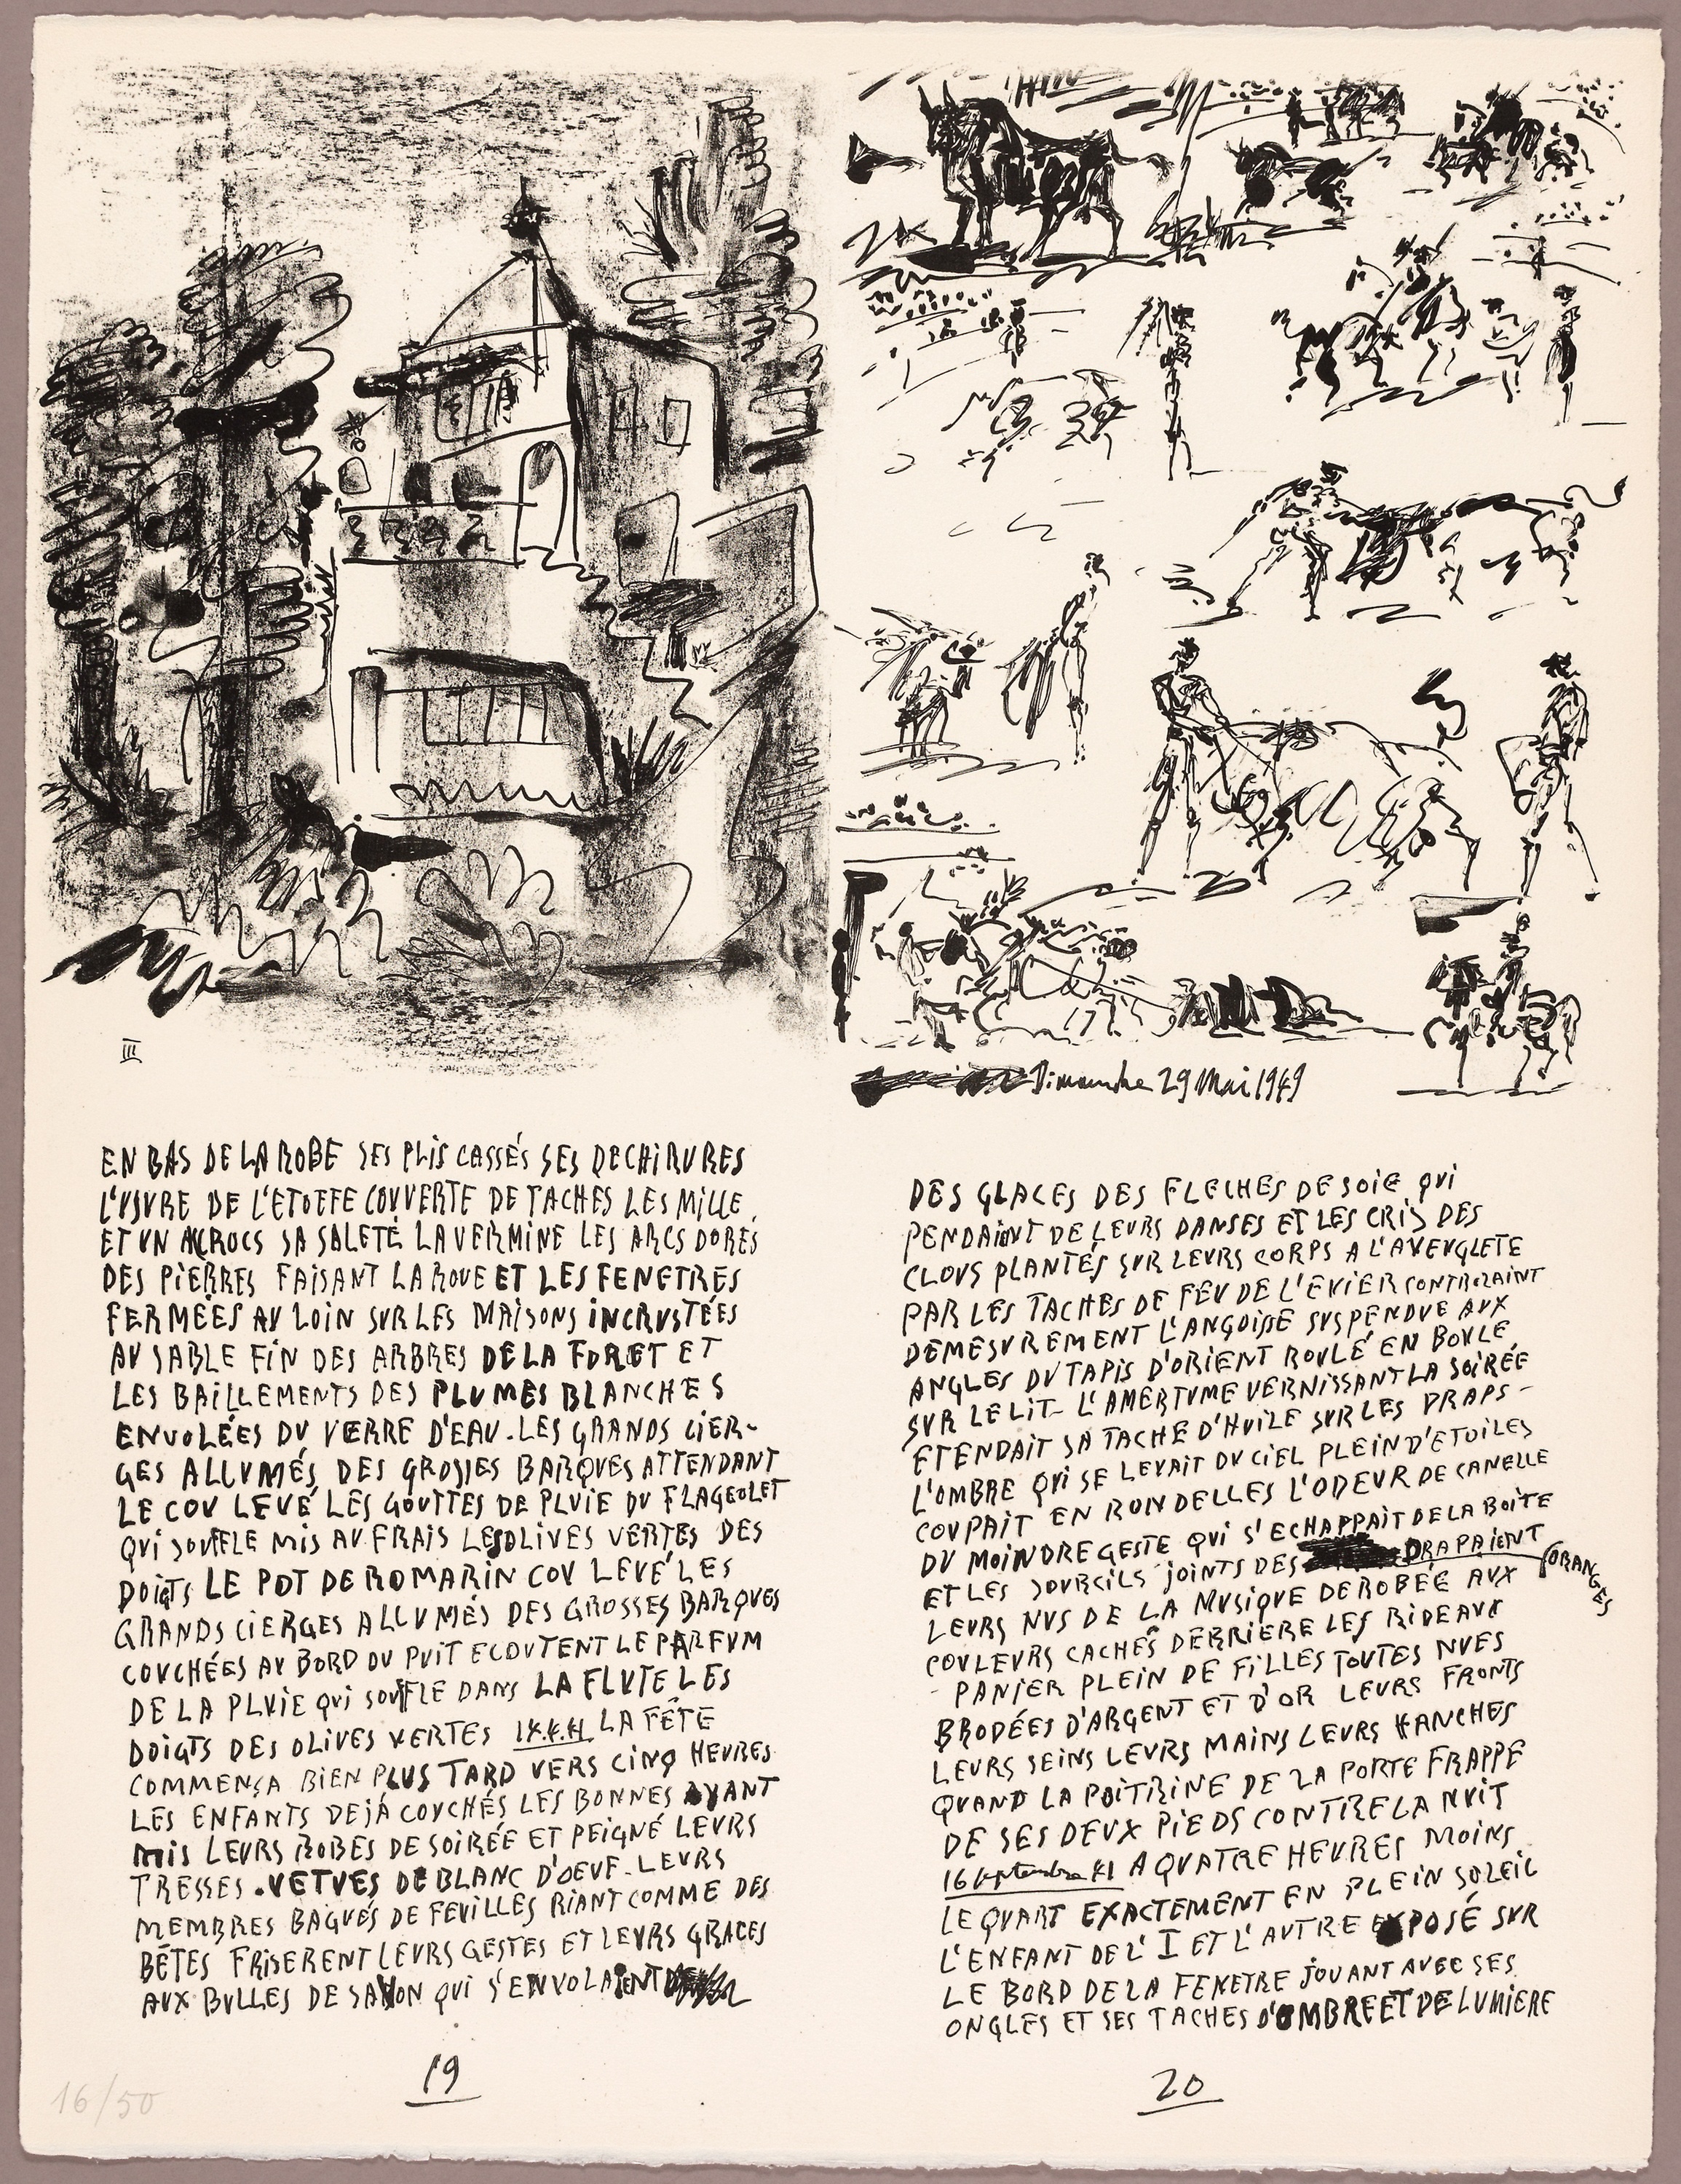 III
Dimanche 29 Mai 1949
EN BAS DE LA ROBE SES PLIS CASSÉS SES DECHIRURES
L'USURE DE L'ETOFFE COUVERTE DE TACHES LES MILLE
ET UN ACCROCS SA SALETÉ LA VERMINE LES ARCS DORÉS
DES PIERRES FAISANT LA ROUE ET LES FENETRES
FERMÉES AU LOIN SUR LES MAISONS INCRUSTÉES
AU SABLE FIN DES ARBRES DE LA FORET ET
LES BAILLEMENTS DES PLUMES BLANCHES
ENVOLÉES DU VERRE D'EAU. LES GRANDS CIER-
GES ALLUMÉS DES GROSSES BARQUES ATTENDANT
LE COU LEVÉ LES GOUTTES DE PLUIE DU FLAGEOLET
QUI SOUFFLE MIS AU FRAIS LES OLIVES VERTES DES
DOIGTS LE POT DE ROMARIN COU LEVÉ LES
GRANDS CIERGES ALLUMÉS DES GROSSES BARQUES
COUCHÉES AU BORD DU PUIT ECOUTENT LE PARFUM
DE LA PLUIE QUI SOUFFLE DANS LA FLUTE LES
DOIGTS DES OLIVES VERTES LA FÊTE
COMMENÇA BIEN PLUS TARD VERS CINQ HEURES
LES ENFANTS DEJÁ COUCHÉS LES BONNES AYANT
MIS LEURS ROBES DE SOIRÉE ET PEIGNÉ LEURS
TRESSES. VETUES DE BLANC D'OEUF. LEURS
MEMBRES BAGUÉS DE FEUILLES RIANT COMME DES
BÊTES FRISERENT LEURS GESTES ET LEURS GRACES
AUX BULLES DE SAVON QUI S'ENVOLAIENT
19
DES GLACES DES FLECHES DE SOIE QUI
PENDAIENT DE LEURS DANSES ET LES CRIS DES
CLOUS PLANTÉS SUR LEURS CORPS A L'AVEUGLETE
PAR LES TACHES DE FEU DE L'EVIER CONTRAINT
DEMESUREMENT L'ANGOISSE SUSPENDUE AUX
ANGLES DU TAPIS D'ORIENT ROULÉ EN BOULE
SUR LE LIT - L'AMERTUME VERNISSANT LA SOIRÉE
ETENDAIT SA TACHE D'HUILE SUR LES DRAPS -
L'OMBRE QUI SE LEVAIT DU CIEL PLEIN D'ETOILES
COUPAIT EN RONDELLES L'ODEUR DE CANELLE
DU MOINDRE GESTE QUI S'ECHAPPAIT DE LA BOITE
ET LES SOURCILS JOINTS DES ORANGES DRAPAIENT
LEURS NUS DE LA MUSIQUE DEROBÉE AUX
COULEURS CACHÉS DERRIERE LES RIDEAUX
PANIER PLEIN DE FILLES TOUTES NUES
BRODÉES D'ARGENT ET D'OR LEURS FRONTS
LEURS SEINS LEURS MAINS LEURS HANCHES
QUAND LA POITRINE DE LA PORTE FRAPPE
DE SES DEUX PIEDS CONTRE LA NUIT
16 septembre 41 A QUATRE HEURES MOINS
LE QUART EXACTEMENT EN PLEIN SOLEIL
L'ENFANT DE L' I ET L'AUTRE EXPOSÉ SUR
LE BORD DE LA FENETRE JOUANT AVEC SES
ONGLES ET SES TACHES D'OMBRE ET DE LUMIERE
20
16/50